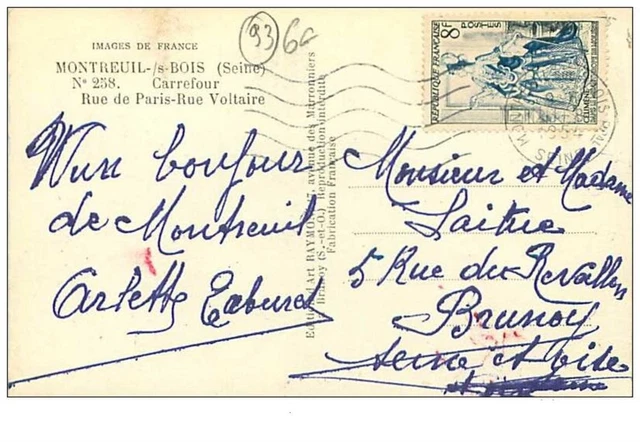 93
6c
IMAGES DE FRANCE
MONTREUIL-/s-BOIS (Seine)
N° 258. Carrefour
Rue de Paris-Rue Voltaire
Wun bonjour
de Montreuil
Arlette
Edition d'Art RAYMON, 7, avenue des Marronniers
Brunoy (S.-et-O.) Reproduction Interdite
Fabrication Française
8F
POSTES
REPUBLIQUE FRANÇAISE
SEINE
Monsieur et Madame
Laitue
5 Rue du Revallon
Brunoy
Seine et Oise